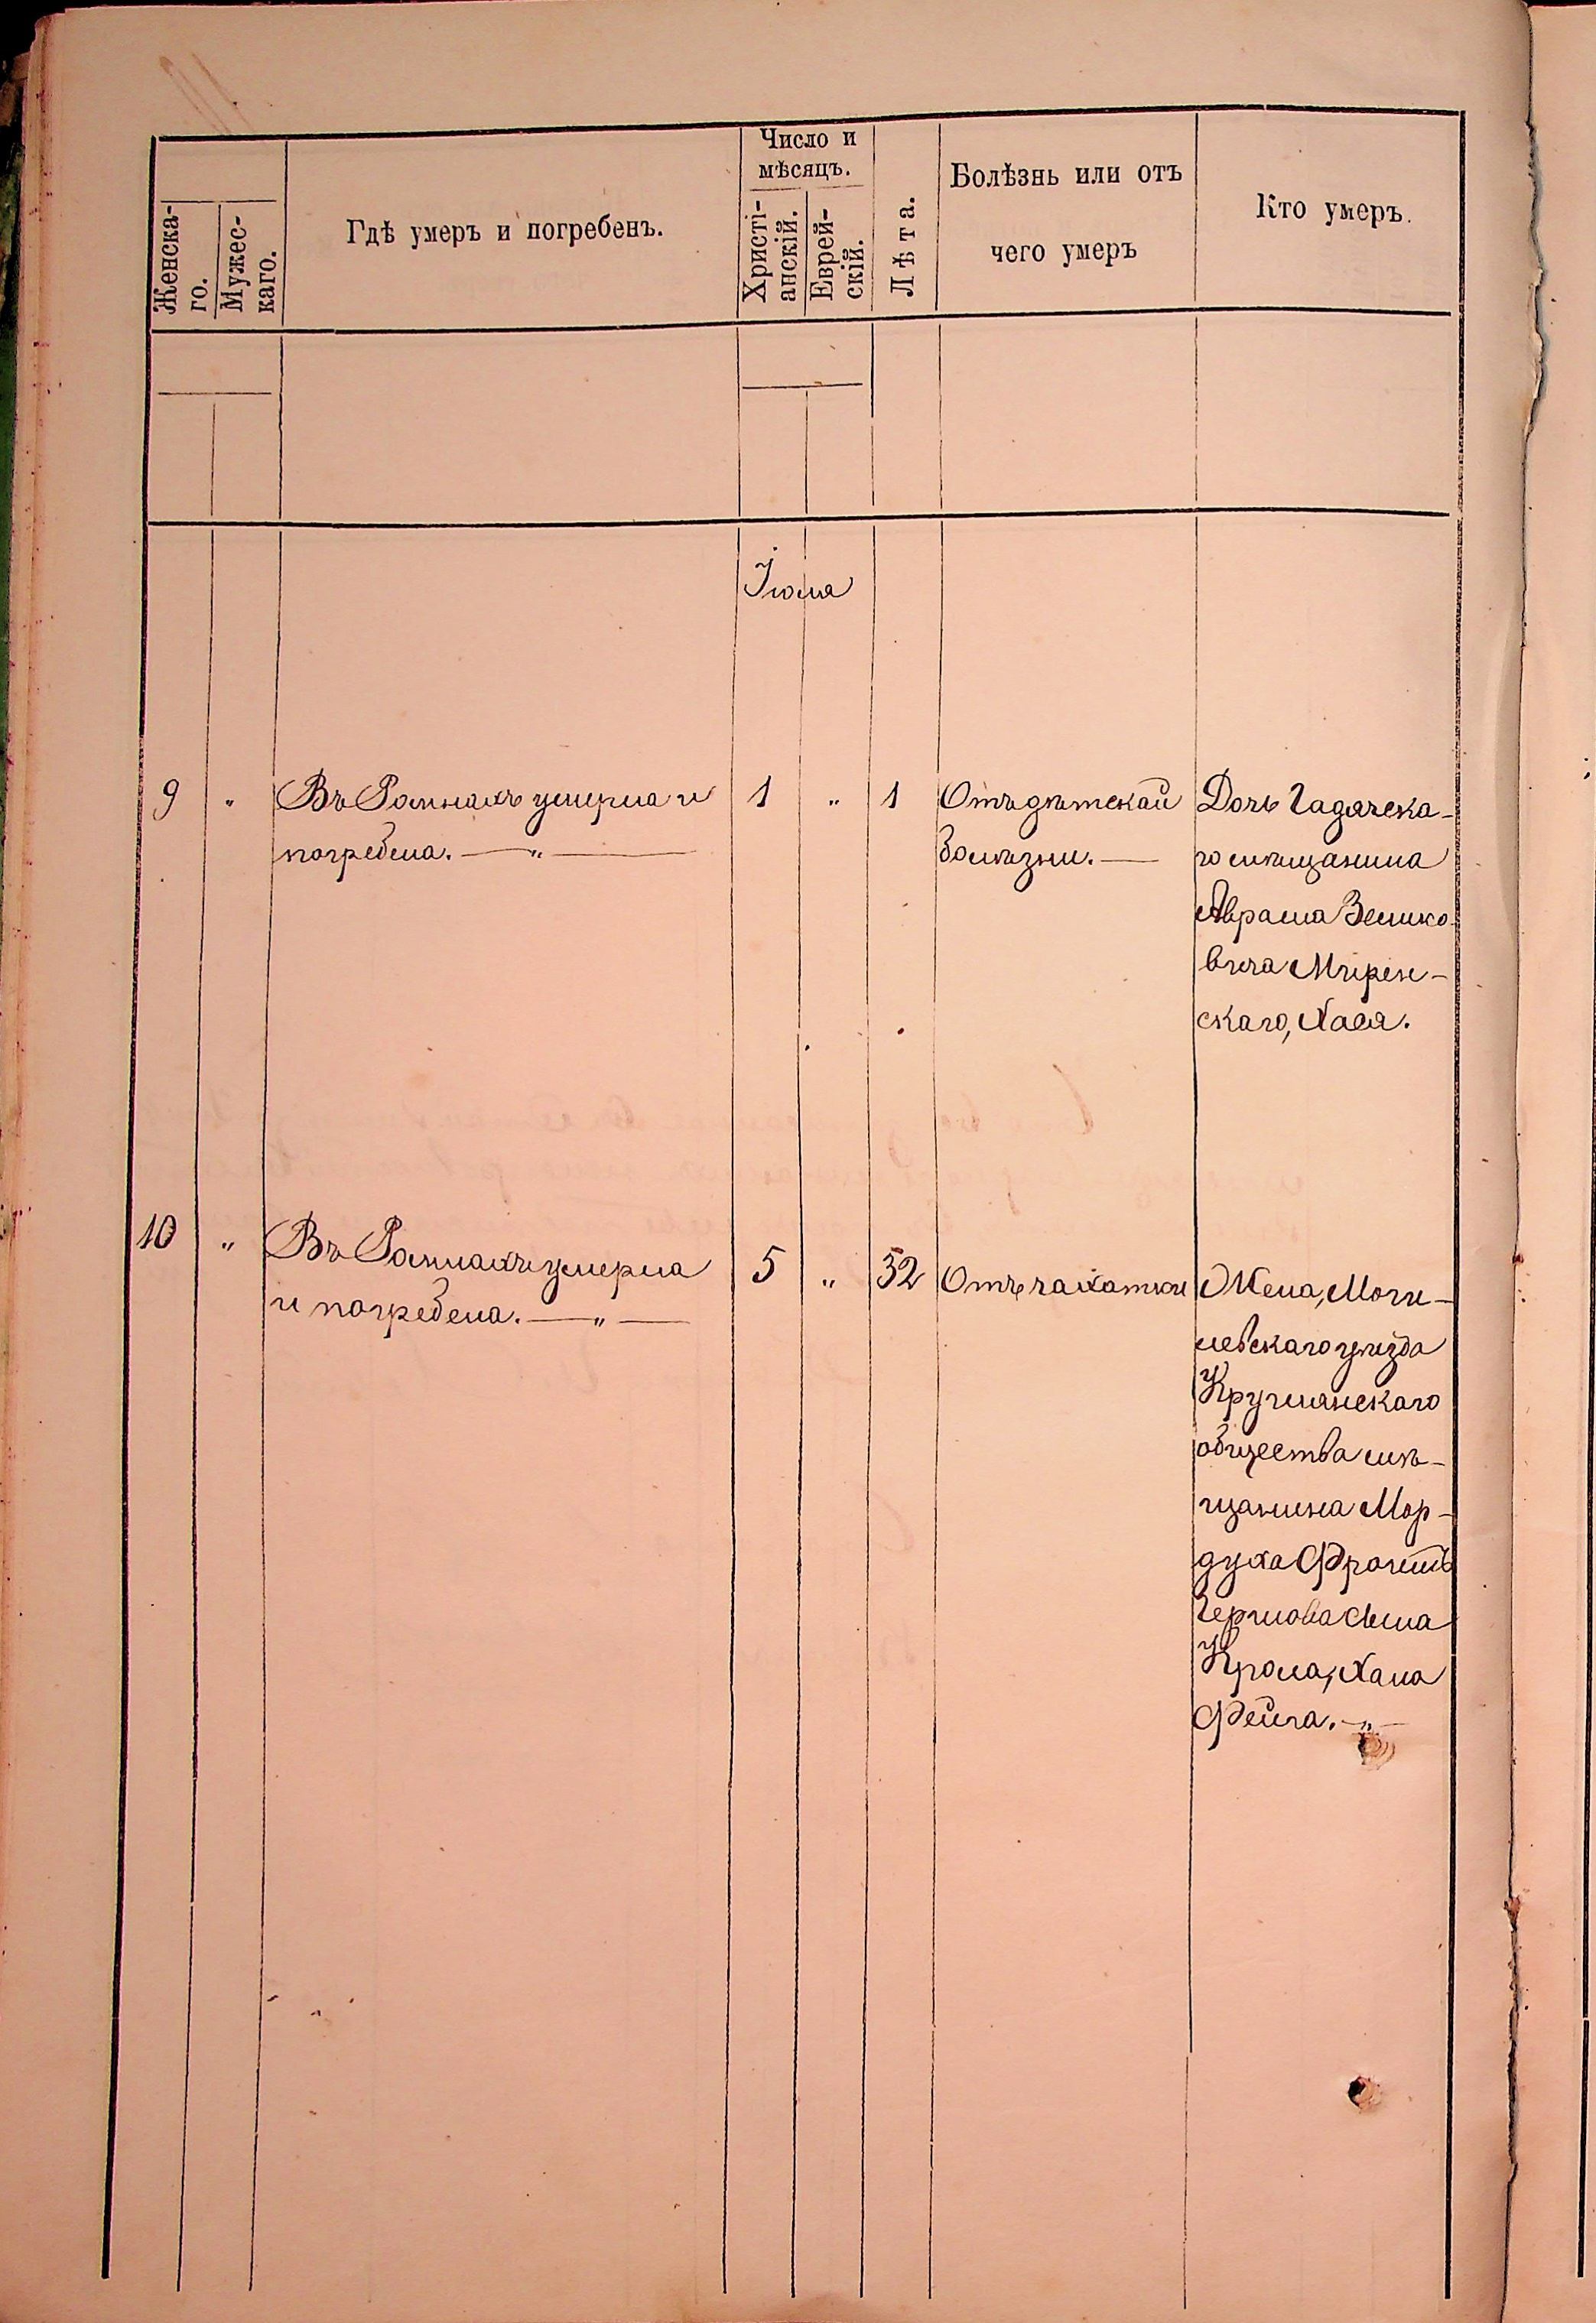 Женска-
го.
Мужес-
каго.
Гдѣ умеръ и погребенъ.
Число и
мѣсяцъ.
Христі-
анскій.
Еврей-
скій.
Лѣта.
Болѣзнь или отъ
чего умеръ
Кто умеръ.
Іюля
9 " Въ Ромнахъ умерла и 1 " 1 Отъ дѣтской Дочь Гадячска-
погребена. — " — болѣзни. — го мѣщанина
Аврама Зелико-
вича Мирен-
скаго, Хася.
10 " Въ Ромнахъ умерла 5 " 52 Отъ чахотки Жена, Моги-
и погребена. — " — левскаго уѣзда
Круглянскаго
общества мѣ-
щанина Мор-
духа
сына
Крола, Хана
Фейга. — " —